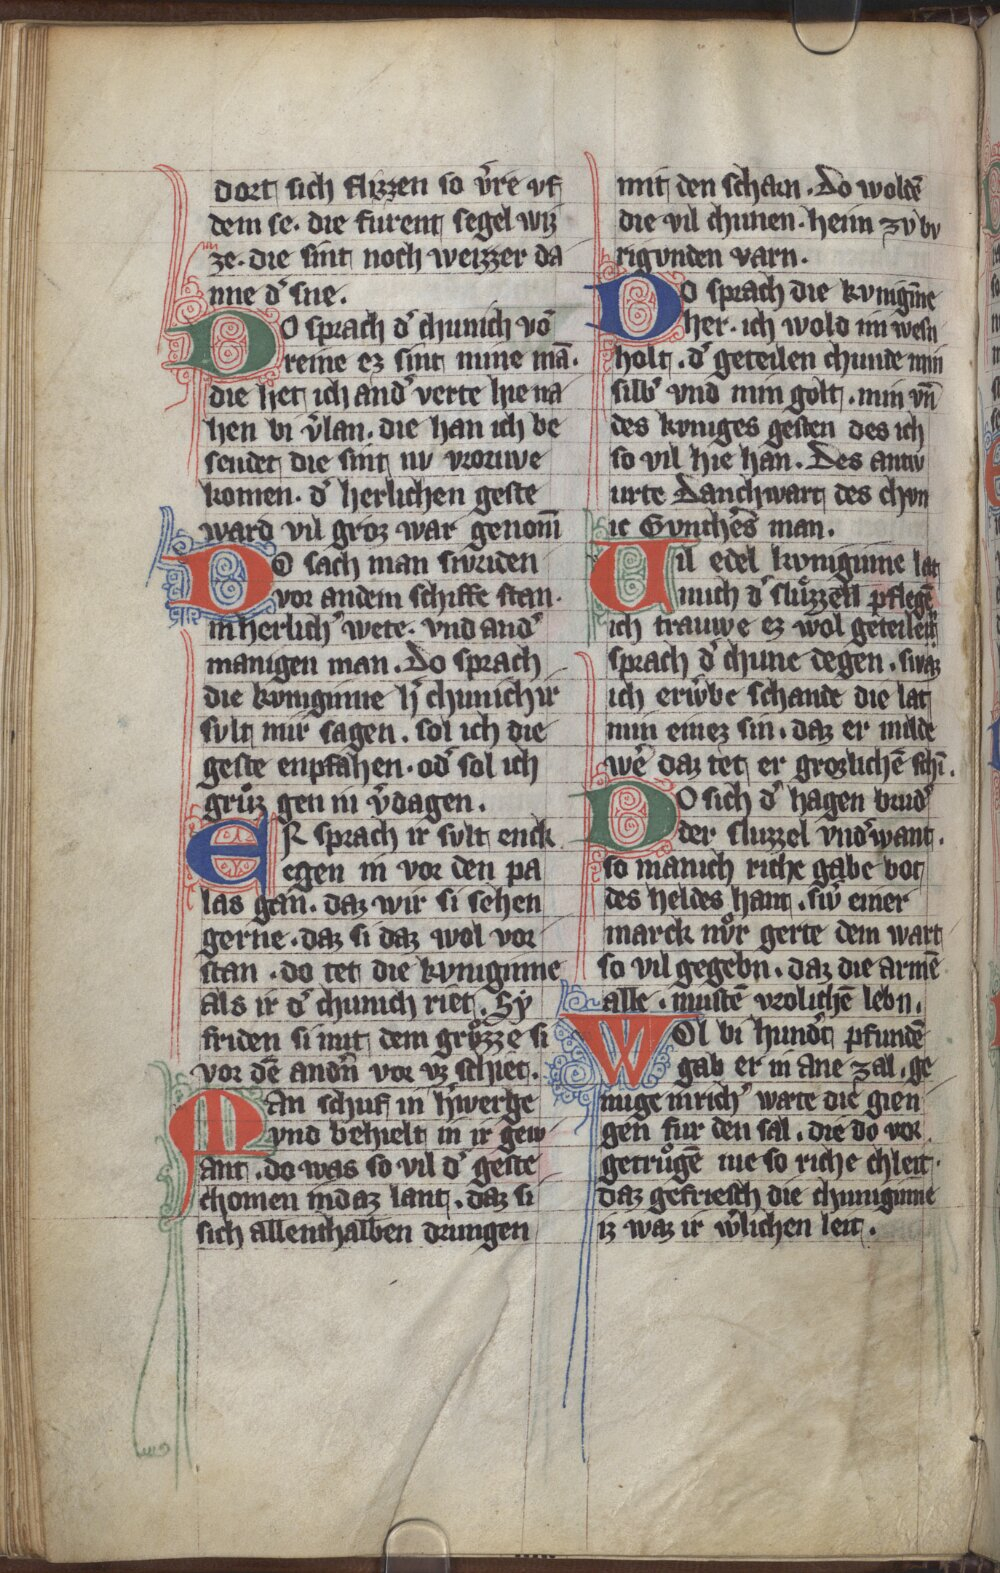 dort sich flizzen so v̾re vf
dem se. die furent segel wiz
ze. die sint noch weizzer da
nne d᾽ sne.
DO sprach d᾽ chunich vō
reine ez sint mine mā.
die het ich and᾽ verte hie na
hen bi v̾lan. die han ich be
sendet die sint nv vrouwe
komen. d᾽ herlichen geste
ward vil groz war genom̄
DO sach man sivriden
vor andem schiffe stan.
in herlich᾽ wete. vnd and᾽
manigen man. Do sprach
die kvniginne h᾽ chunich ir
svlt mir sagen. sol ich die
geste enpfahen. od᾽ sol ich
grůz gen in v̾dagen.
ER sprach ir svlt enck
egen in vor den pa
las gan. daz wir si sehen
gerne. daz si daz wol vor
stan. do tet die kvniginne
als ir d᾽ chunich riet. Sy
friden si mit dem grůzze si
vor dē andn̄ vor vz schiet.
MAn schuf in h᾽werge
vnd behielt in ir gew
ant. do was so vil d᾽ geste
chomen indaz lant. daz si
sich allenthalben drungen
mit den scharn. Do woldē
die vil chunen. heim zů bv
rigvnden varn.
DO sprach die kvnigīne
her. ich wold im wesn
holt. d᾽ geteilen chunde min
silb᾽ vnd min golt. min vn̄
des kvniges gesten des ich
so vil hie han. Des antw
urte Danchwart des chvn
ic Gvnthers man.
VIl edel kvniginne lat
mich d᾽ slůzzell pflegē
ich trauwe ez wol geteilen
sprach d᾽ chune degen. swaz
ich erw̾be schande die lat
min einez sin. daz er milde
we᾽ daz tet er grozlichē schī.
DO sich d᾽ hagen brud᾽
der sluzzel vnd᾽want.
so manich riche gabe bot
des heldes hant. sw᾽ einer
marck nůr gerte dem wart
so vil gegebn. daz die armē
alle. mustē vrolichē lebn.
WOl bi hund᾽t pfundē
gab er in ane zal. ge
nuge inrich᾽ wate die gien
gen fur den sal. die do vor
getrůgē nie so riche chleit.
daz gefriesch die chuniginne
iz waz ir w̾lichen leit.